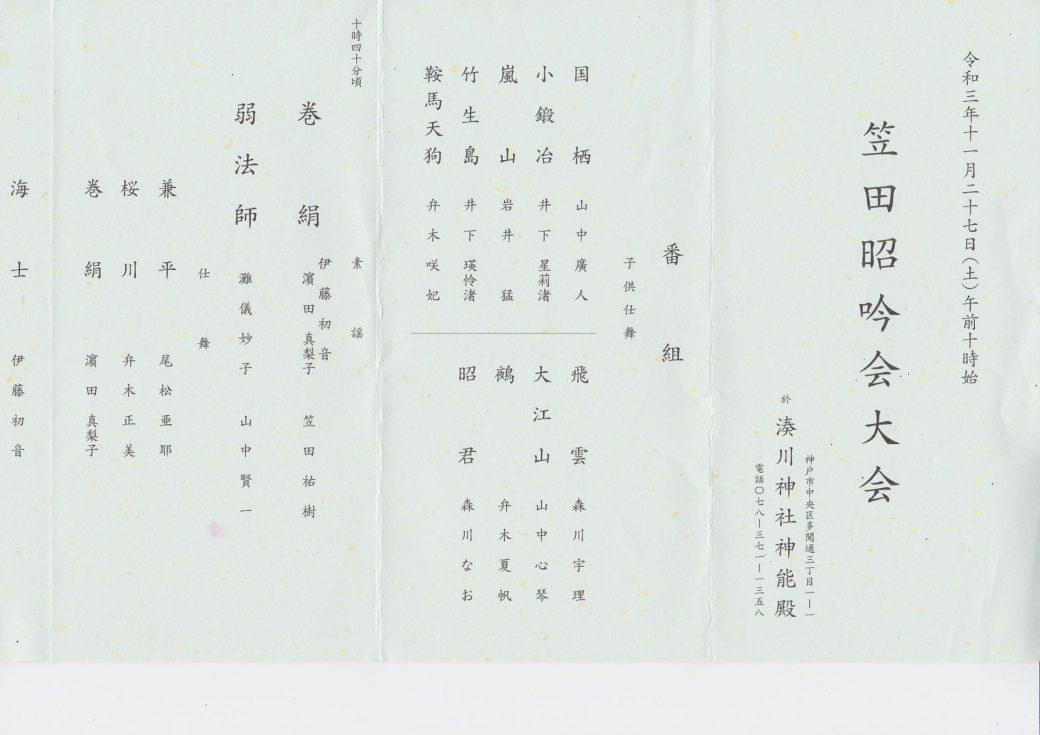 令和三年十一月二十七日(土)午前十時始
笠田昭吟会大会
神戸市中央区多聞通三丁目一ー一
於 湊川神社神能殿
電話〇七八ー三七一ー一三五八
番組
子供仕舞
国栖 山中廣人
小鍛冶 井下星莉渚
嵐山 岩井猛
竹生島 井下瑛怜渚
鞍馬天狗 弁木咲妃
飛雲 森川宇理
大江山 山中心琴
鵺 弁木夏帆
昭君 森川なお
十時四十分頃
素謡
巻絹 伊藤初音
濵田真梨子 笠田祐樹
弱法師 灘儀妙子 山中賢一
仕舞
兼平 尾松亜耶
桜川 弁木正美
巻絹 濵田真梨子
海士 伊藤初音